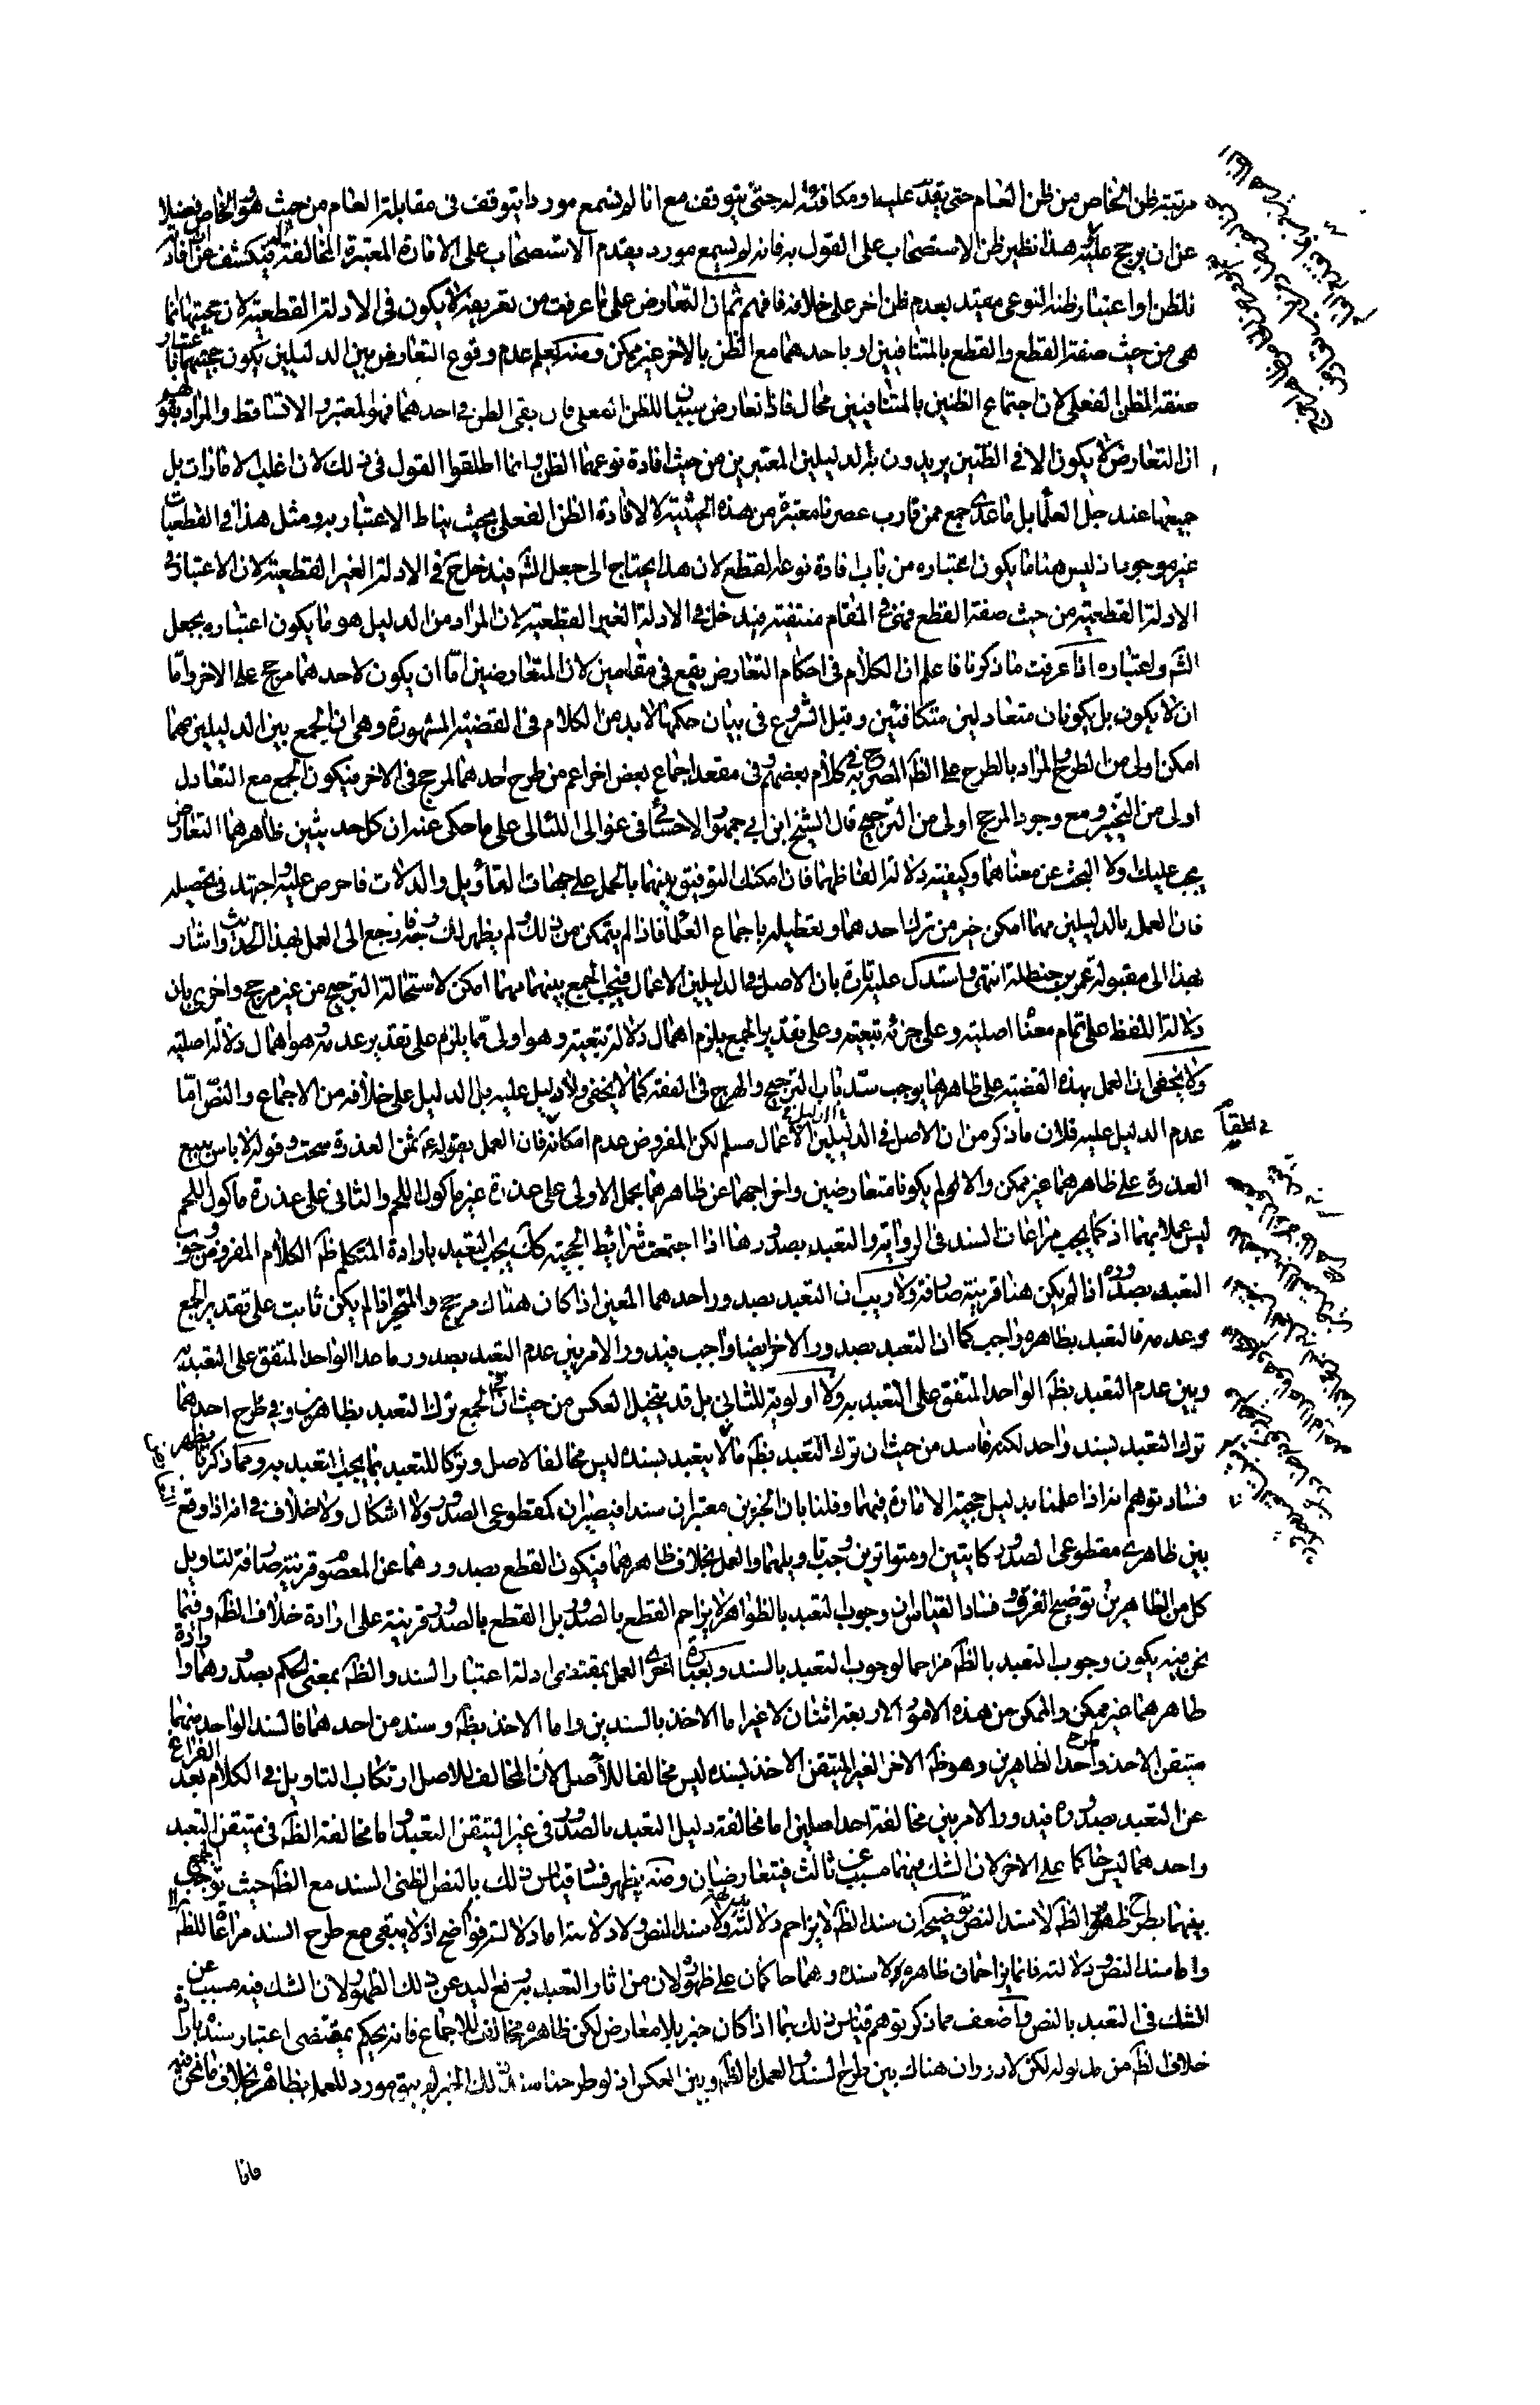 مرتبة ظن الخاص من ظن العام حتى يقدم عليه ومكافئته له حتى يتوقف مع انا لم نسمع موردا يتوقف فى مقابلة العام من حيث هو والخاص فضلا
عن ان يرجح عليه هذا نظير ظن الاستصحاب على القول به فانه لم يسمع مورد يقدم الاستصحاب على الامارة المعتبرة المخالفة له فيكشف عن ان افادته
للظن او اعتبار ظنه النوعى مقيد بعدم ظن اخر على خلافه فافهم ثم ان التعارض على ما عرفت من تعريفه لا يكون فى الادلة القطعية لان حجيتها انما
هى من حيث صفة القطع والقطع بالمتنافيين او باحدهما مع الظن بالاخر غير ممكن ومنه يعلم عدم وقوع التعارض بين الدليلين يكون حجيتهما باعتبار
صفة الظن الفعلى لان اجتماع الظنين بالمتنافيين محال فاذا تعارض سببان للظن الفعلى فان بقى الظن فى احدهما فهو المعتبر والا تساقط والمراد بقولهم
ان التعارض لا يكون الا فى الظنين يريدون به الدليلين المعتبرين من حيث افادة نوعهما الظن وانما اطلقوا القول فى ذلك لان اغلب الامارات بل
جميعها عند جل العلماء بل ما عدى جمع ممن قارب عصرنا معتبرة من هذه الحيثية لا لافادة الظن الفعلى بحيث يناط الاعتبار به ومثل هذا فى القطعيات
غير موجود اذ ليس هنا ما يكون اعتباره من باب افادة نوعه القطع لان هذا يحتاج الى جعل الشه فيدخل ح فى الادلة الغير القطعية لان الاعتبار فى
الادلة القطعية من حيث صفة القطع فهى فى المقام منتفية فيدخل فى الادلة الغير القطعية لان المراد من الدليل هو ما يكون اعتباره بجعل
الشه واعتباره اذا عرفت ما ذكرنا فاعلم ان الكلام فى احكام التعارض يقع فى مقامين لان المتعارضين اما ان يكون لاحدهما مرجح على الاخر واما
ان لا يكون بل يكونان متعادلين متكافئين وقبل الشروع فى بيان حكمهما لابد من الكلام فى القضية المشهورة وهى ان الجمع بين الدليلين مهما
امكن اولى من الطرح والمراد بالطرح على الظه المصرح به فى كلام بعضهم وفى معقد اجماع بعض اخر اعم من طرح احدهما لمرجح فى الاخر فيكون الجمع مع التعادل
اولى من التخيير ومع وجود المرجح اولى من الترجيح قال الشيخ ابن ابى جمهور الاحسائى فى عوالى اللئالى على ما حكى عنه ان كل حديثين ظاهرهما التعارض
يجب عليك اولا البحث عن معناهما وكيفية دلالة الفاظهما فان امكنك التوفيق بينهما بالحمل على جهات التأويل والدلالات فاحرص عليه واجتهد فى تحصيله
فان العمل بالدليلين مهما امكن خير من ترك احدهما وتعطيله باجماع العلماء فاذا لم يتمكن من ذلك ولم يظهر لك وجهه فارجع الى العمل بهذا الحديث واشار
بهذا الى مقبولة عمر بن حنظلة انتهى واستدل عليه تارة بان الاصل فى الدليلين الاعمال فيجب الجمع بينهما مهما امكن لاستحالة الترجيح من غير مرجح واخرى بان
دلالة اللفظ على تمام معناه اصلية وعلى جزئه تبعية وعلى تقدير الجمع يلزم اهمال دلالة تبعية وهو اولى مما يلزم على تقدير عدمه وهو اهمال دلالة اصلية
ولا يخفى ان العمل بهذه القضية على ظاهرها يوجب سد باب الترجيح والهرج فى الفقه كما لا يخفى ولا دليل عليه بل الدليل على خلافه من الاجماع والنص اما
عدم الدليل عليه فلان ما ذكر من ان الاصل فى الدليلين الاعمال مسلم لكن المفروض عدم امكانه فان العمل بقوله ع ثمن العذرة سحت وقوله لا باس ببيع
العذرة على ظاهرهما غير ممكن والا لم يكونا متعارضين واخراجهما عن ظاهرهما بحمل الاولى على عذرة غير ماكول اللحم والثانى على عذرة ماكول اللحم
ليس عملا بهما اذ كما يجب مراعات السند فى الرواية والتعبد بصدورها اذا اجتمعت شرائط الحجية كك يجب التعبد بارادة المتكلم ظه الكلام المفروض وجوب
التعبد بصدوره اذا لم يكن هنا قرينة صارفة ولا ريب ان التعبد بصدور احدهما المعين اذا كان هناك مرجح والمخير اذا لم يكن ثابت على تقدير الجمع
وعدمه فالتعبد بظاهره واجب كما ان التعبد بصدور الاخر ايضا واجب فيدور الامر بين عدم التعبد بصدور ما عدا الواحد المتفق على التعبد به
وبين عدم التعبد بظه الواحد المتفق على التعبد به ولا اولوية للثانى بل قد يتخيل العكس من حيث ان فى الجمع ترك التعبد بظاهرين وفى طرح احدهما
ترك التعبد بسند واحد لكنه فاسد من حيث ان ترك التعبد بظه ما لا يتعبد بسنده ليس مخالفا للاصل وتركا للتعبد بما يجب التعبد به ومما ذكرنا يظهر
فساد توهم انه اذا علمنا بدليل حجية الامارة فيهما وقلنا بان الخبرين معتبران سندا فيصيران كمقطوعى الصدور ولا اشكال ولا خلاف فى انه اذا وقع
بين ظاهرى مقطوعى الصدور كايتين او متواترين وجب تاويلهما والعمل بخلاف ظاهرهما فيكون القطع بصدورهما عن المعصوم قرينة صارفة لتاويل
كل من الظاهرين توضيح الفرق وفساد القياس ان وجوب التعبد بالظواهر لا يزاحم القطع بالصدور بل القطع بالصدور قرينة على ارادة خلاف الظه وفيما
نحن فيه يكون وجوب التعبد بالظه مزاحما لوجوب التعبد بالسند وبعبارة اخرى العمل بمقتضى ادلة اعتبار السند والظه بمعنى الحكم بصدورهما وارادة
ظاهرهما غير ممكن والممكن من هذه الامور الاربعة اثنان لا غير اما الاخذ بالسندين واما الاخذ بظه وسند من احدهما فالسند الواحد منهما
متيقن الاخذ وطرح احد الظاهرين وهو ظه الاخر الغير المتيقن الاخذ بسنده ليس مخالفا للاصل لان المخالف للاصل ارتكاب التاويل فى الكلام بعد الفراغ
عن التعبد بصدوره فيدور الامر بين مخالفة احد اصلين اما مخالفة دليل التعبد بالصدور فى غير المتيقن التعبد واما مخالفة الظه فى متيقن التعبد
واحدهما ليس حاكما على الاخر لان الشك فيهما مسبب عن ثالث فيتعارضان ومنه يظهر فساد قياس ذلك بالنص الظنى السند مع الظه حيث يوجب الجمع
بينهما بطرح ظهور الظه لا سند النص توضيحه ان سند الظه لا يزاحم دلالته ولا سند النص ولا دلالته اما دلالته فواضح اذ لا يبقى مع طرح السند مراعاة للظه
واما سند النص ودلالته فانما يزاحمان ظاهره لا سنده وهما حاكمان على ظهوره لان من اثار التعبد به رفع اليد عن ذلك الظهور لان الشك فيه مسبب عن
الشك فى التعبد بالنص واضعف مما ذكر توهم قياس ذلك بما اذا كان خبر بلا معارض لكن ظاهره مخالف للاجماع فانه يحكم بمقتضى اعتبار سنده بارادة
خلاف الظه من مدلوله لكن لا دوران هناك بين طرح السند والعمل بالظه وبين العكس اذ لو طرحنا سند ذلك الخبر لم يبق مورد للعمل بظاهره بخلاف ما نحن فيه
فانا